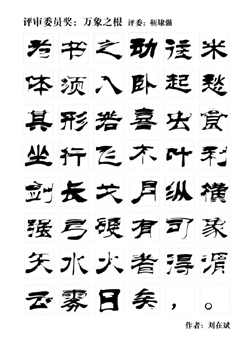 评审委员奖：万象之根 评委：靳埭强
为书之动往来
体须入卧起愁
其形若喜出食
坐行飞不叶利
剑长戈月纵横
强弓硬有可象
矢水火者得谓
云雾日矣，。
作者：刘在斌